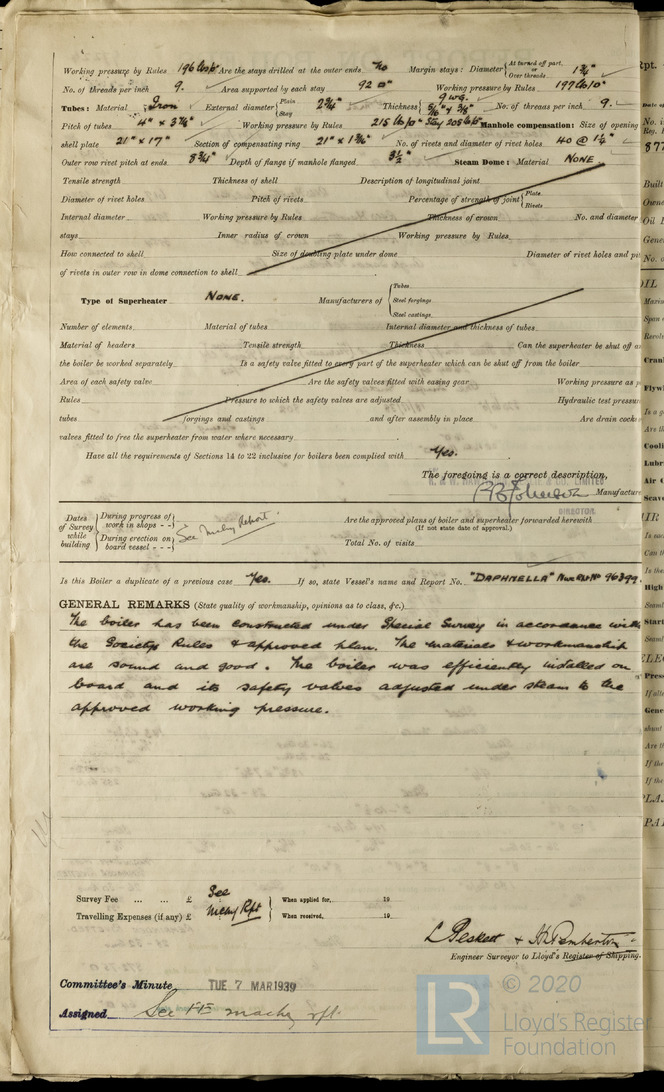 Working pressure by Rules 196 lbs/□" Are the stays drilled at the outer ends No Margin stays: Diameter {At turned off part, or Over threads 1 3/4"
No. of threads per inch 9. Area supported by each stay 92 □" Working pressure by Rules 197 lb/□"
Tubes: Material Iron External diameter {Plain Stay 2 3/4" Thickness {9 w.g. 5/16" & 3/8" No. of threads per inch 9.
Pitch of tubes 4" × 3 7/8" Working pressure by Rules 215 lb/□" Stay 208 lb/□" Manhole compensation: Size of opening
shell plate 21" × 17" Section of compensating ring 21" × 1 3/16" No. of rivets and diameter of rivet holes 40 @ 1 1/4"
Outer row rivet pitch at ends 8 3/4" Depth of flange if manhole flanged 3 1/2" Steam Dome: Material NONE
Tensile strength Thickness of shell Description of longitudinal joint
Diameter of rivet holes Pitch of rivets Percentage of strength of joint {Plate Rivets
Internal diameter Working pressure by Rules Thickness of crown No. and diameter
stays Inner radius of crown Working pressure by Rules
How connected to shell Size of doubling plate under dome Diameter of rivet holes and pi
of rivets in outer row in dome connection to shell
Type of Superheater NONE. Manufacturers of {Tubes Steel forgings Steel castings
Number of elements Material of tubes Internal diameter and thickness of tubes
Material of headers Tensile strength Thickness Can the superheater be shut off a
the boiler be worked separately Is a safety valve fitted to every part of the superheater which can be shut off from the boiler
Area of each safety valve Are the safety valves fitted with easing gear Working pressure as p
Rules Pressure to which the safety valves are adjusted Hydraulic test pressur
tubes forgings and castings and after assembly in place Are drain cocks
valves fitted to free the superheater from water where necessary
Have all the requirements of Sections 14 to 22 inclusive for boilers been complied with Yes.
The foregoing is a correct description,
LIMITED
Manufacture
DIRECTOR
Dates of Survey while building {During progress of work in shops - - During erection on board vessel - - - See Machy Report. Are the approved plans of boiler and superheater forwarded herewith
(If not state date of approval.)
Total No. of visits
Is this Boiler a duplicate of a previous case Yes. If so, state Vessel's name and Report No. "DAPHNELLA" Nwc Rpt No 96399.
GENERAL REMARKS (State quality of workmanship, opinions as to class, &c.)
The boiler has been constructed under Special Survey in accordance with
the Society's Rules & approved plan. The materials & workmanship
are sound and good. The boiler was efficiently installed on
board and its safety valves adjusted under steam to the
approved working pressure.
Survey Fee ... ... £ See When applied for, 19
Travelling Expenses (if any) £ Machy Rpt When received, 19
L Peskett & H Pemberton
Engineer Surveyor to Lloyd's Register of Shipping.
Committee's Minute TUE 7 MAR 1939
Assigned See FE machy rpt.
LR © 2020
Lloyd's Register
Foundation